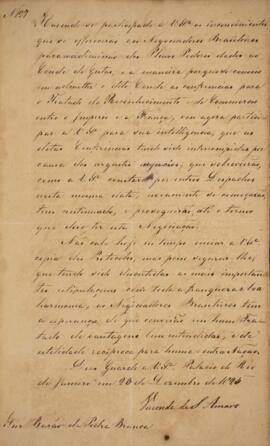 Nº 127
Havendo-se participado a V. Sª os inconvenientes
que se offerecerão aos Negociadores Brasileiros
dos Plenos Poderes dados ao
Conde de Gestas, e a maneira porque
o dito Conde as conferencias para
o Tratado do Reconhecimento e de Commercio
entre o Imperio e a França, vou agora partici-
par a V. Sª para sua intelligencia, que as
ditas Conferencias tendo sido interrompidas por
causa dos arguidos, que sobrevierão,
como a V. Sª constará por outro Despacho
nesta mesma data, novamente se começarão,
tem continuado, e proseguirão, até o termo
que deve ter esta Negociação.
Não cabe hoje no tempo enviar a V. Sª
copia dos Protocolos, mas posso segurar-lhe,
que tendo sido discutidas as mais importan-
tes estipulações com toda a franqueza e boa
harmonia, os Negociadores Brasileiros tem
a esperança de que concluirão hum
tado de vantagens bem entendidas, e de
utilidade reciproca para huma e outra Nação.
Deus Guarde a V. Sª. Palacio do Rio
de Janeiro em 26 de Dezembro de 1825
Visconde de S. Amaro
Snr. Barão da Pedra Branca